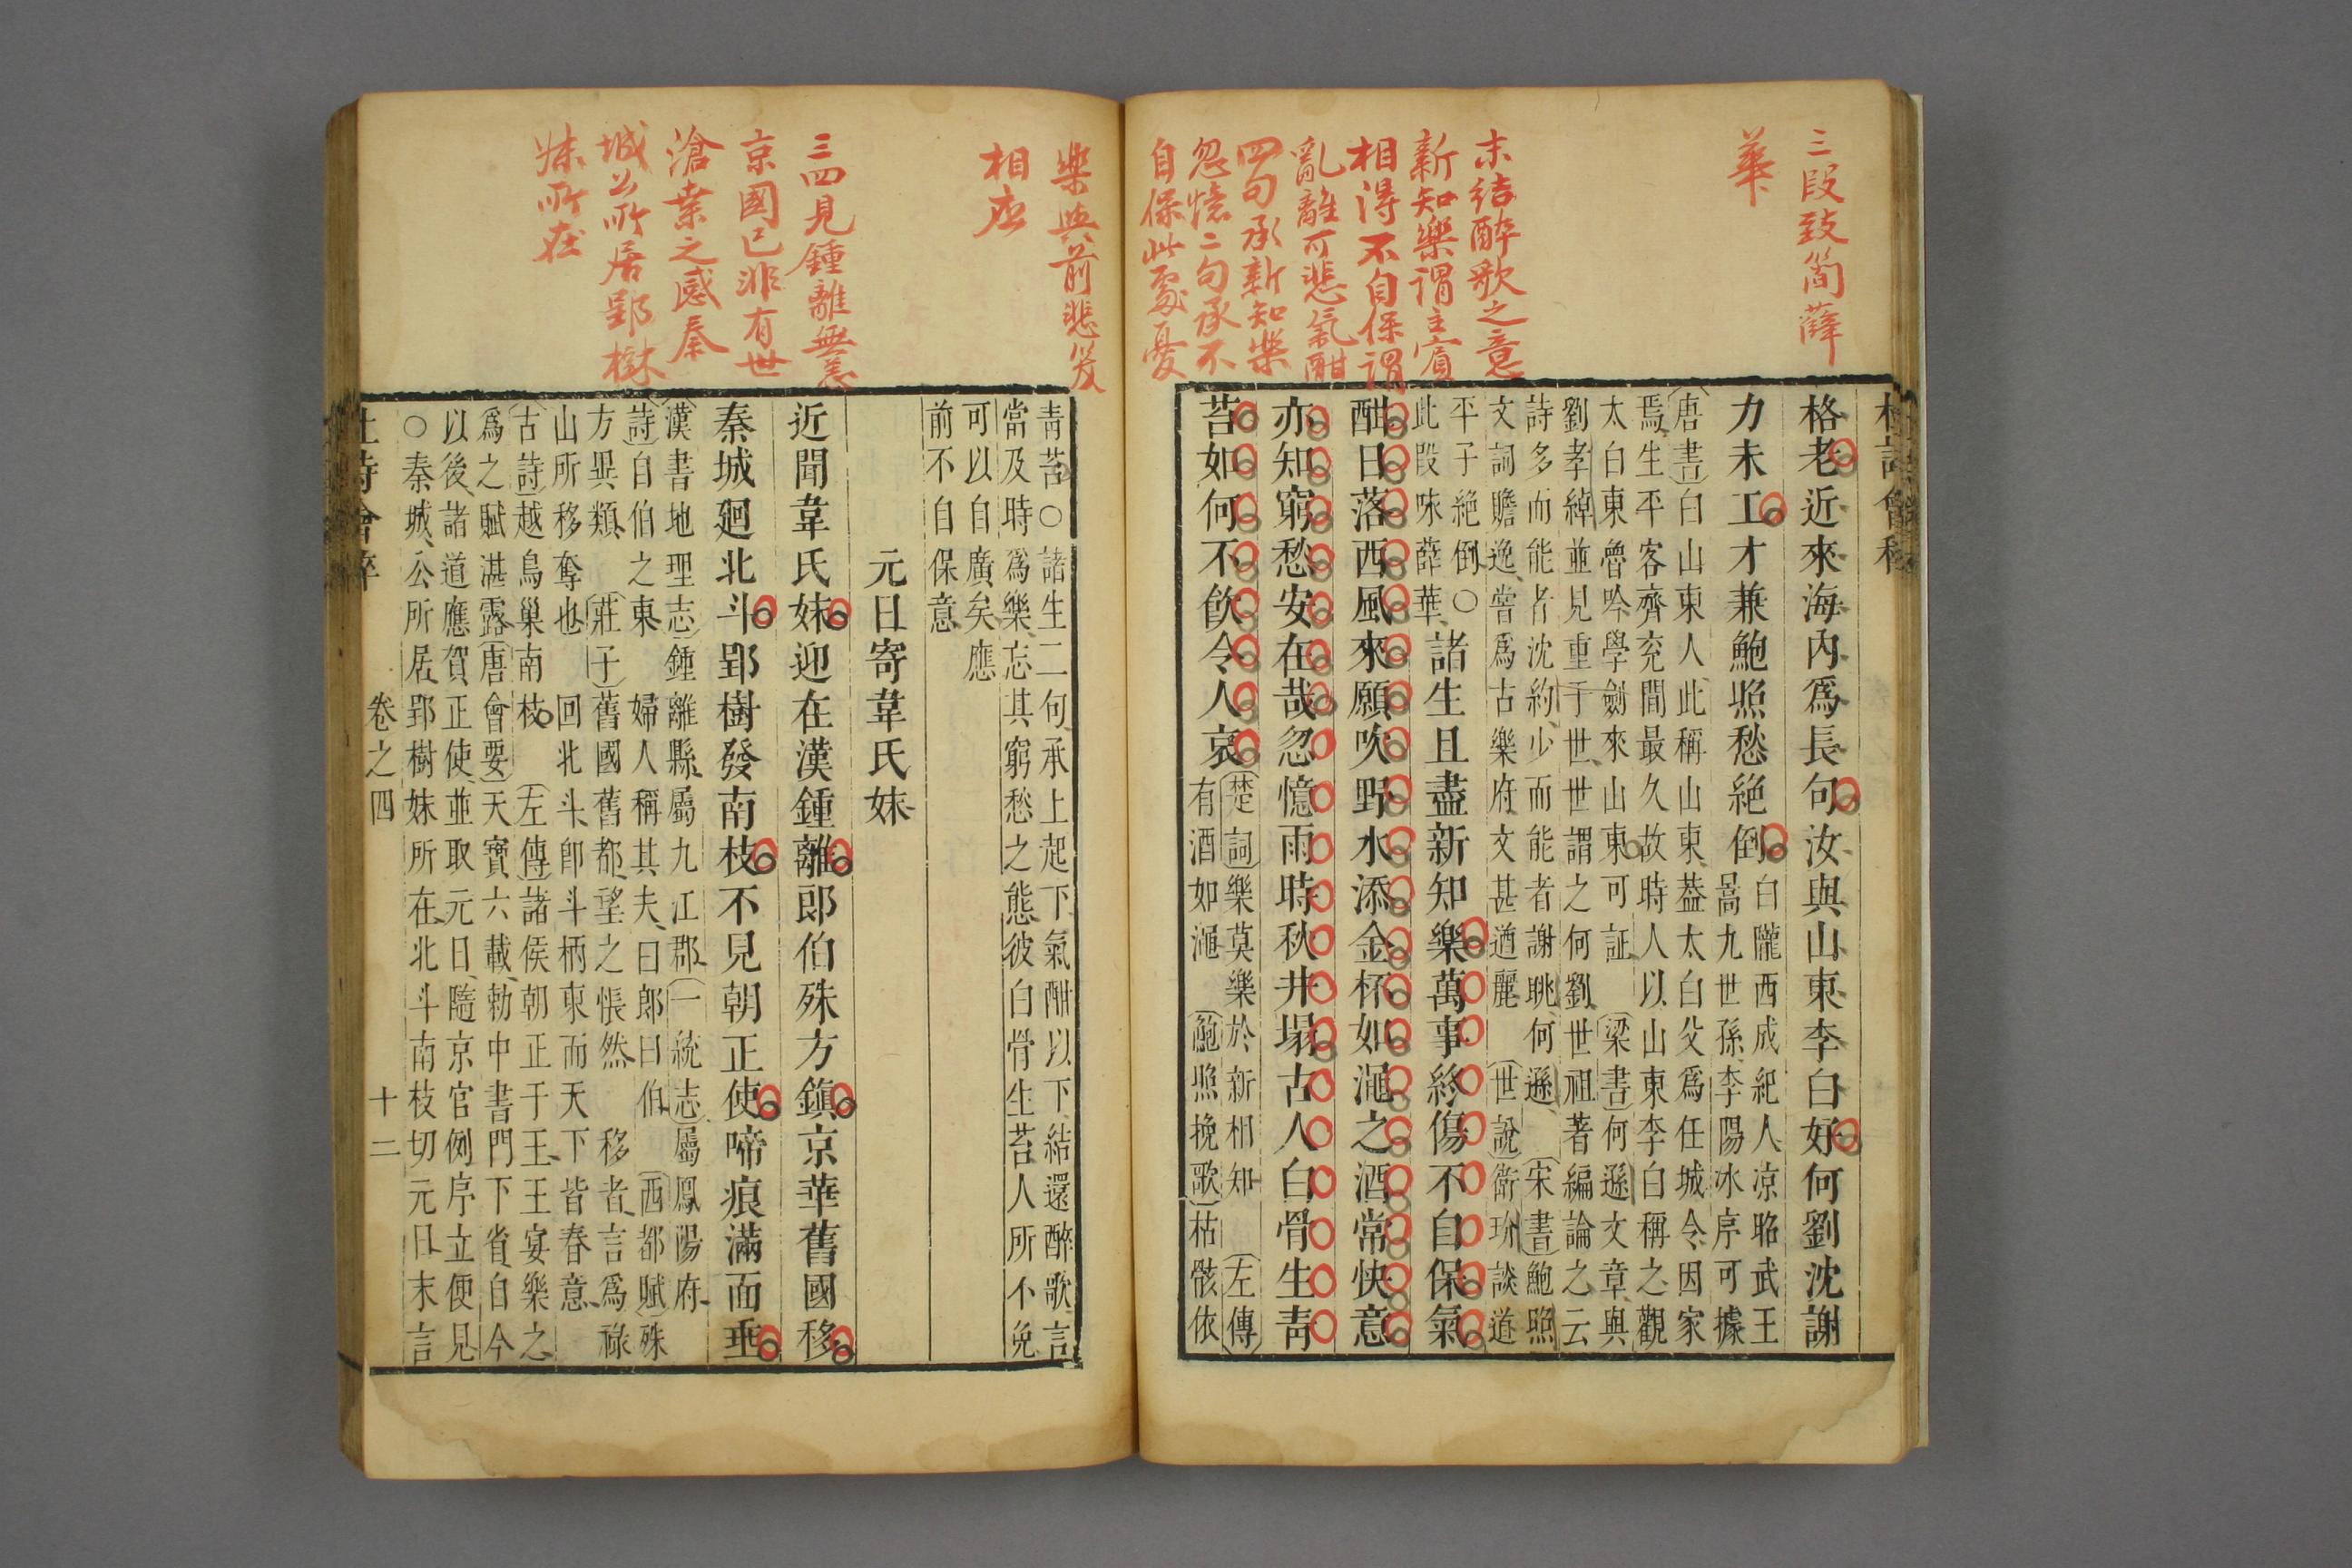 三段致簡薛
華
末結醉歌之意
新知樂謂主賓
相得不自保謂
亂離可悲氣酣
四句承新知樂
忽憶二句承不
自保此處憂
樂與前悲笑
相應
三四見鍾離無恙
京國已非有世
滄桑之感秦
城公所居郢樹
妹所在
格老近來海內爲長句汝與山東李白好何劉沈謝
力未工才兼鮑照愁絕倒
白隴西成紀人凉昭武王
暠九世孫李陽冰序可據
唐書白山東人此稱山東葢太白父爲任城令因家
焉生平客齊兖間最久故時人以山東李白稱之觀
太白東魯吟學劍來山東可証
梁書何遜文章與
劉孝綽並見重于世世謂之何劉世祖著編論之云
詩多而能者沈約少而能者謝眺何遜
宋書鮑照
文詞贍逸嘗爲古樂府文甚遒麗
世說衛玠談道
平子絕倒○
此段味薛華
諸生且盡新知樂萬事終傷不自保氣
酣日落西風來願吹野水添金杯如澠之酒常快意
亦知窮愁安在哉忽憶雨時秋井塌古人白骨生青
苔如何不飲令人哀
楚詞樂莫樂於新相知
左傳
有酒如澠
鮑照挽歌枯骸依
青苔○諸生二句承上起下氣酣以下結還醉歌言
當及時爲樂忘其窮愁之態彼白骨生苔人所不免
可以自廣矣應
前不自保意
元日寄韋氏妹
近聞韋氏妹迎在漢鍾離郎伯殊方鎮京華舊國移
秦城廻北斗郢樹發南枝不見朝正使啼痕滿面垂
漢書地理志鍾離縣屬九江郡一統志屬鳳陽府
詩自伯之東
婦人稱其夫曰郎曰伯
西都賦殊
方異類
莊子舊國舊都望之悵然
移者言爲祿
山所移奪也
回北斗卽斗柄東而天下皆春意
古詩越鳥巢南枝
左傳諸侯朝正于王王宴樂之
爲之賦湛露唐會要天寶六載勅中書門下省自今
以後諸道應賀正使並取元日隨京官例序立便見
○秦城公所居郢樹妹所在北斗南枝切元日末言
杜詩會粹
卷之四
十二